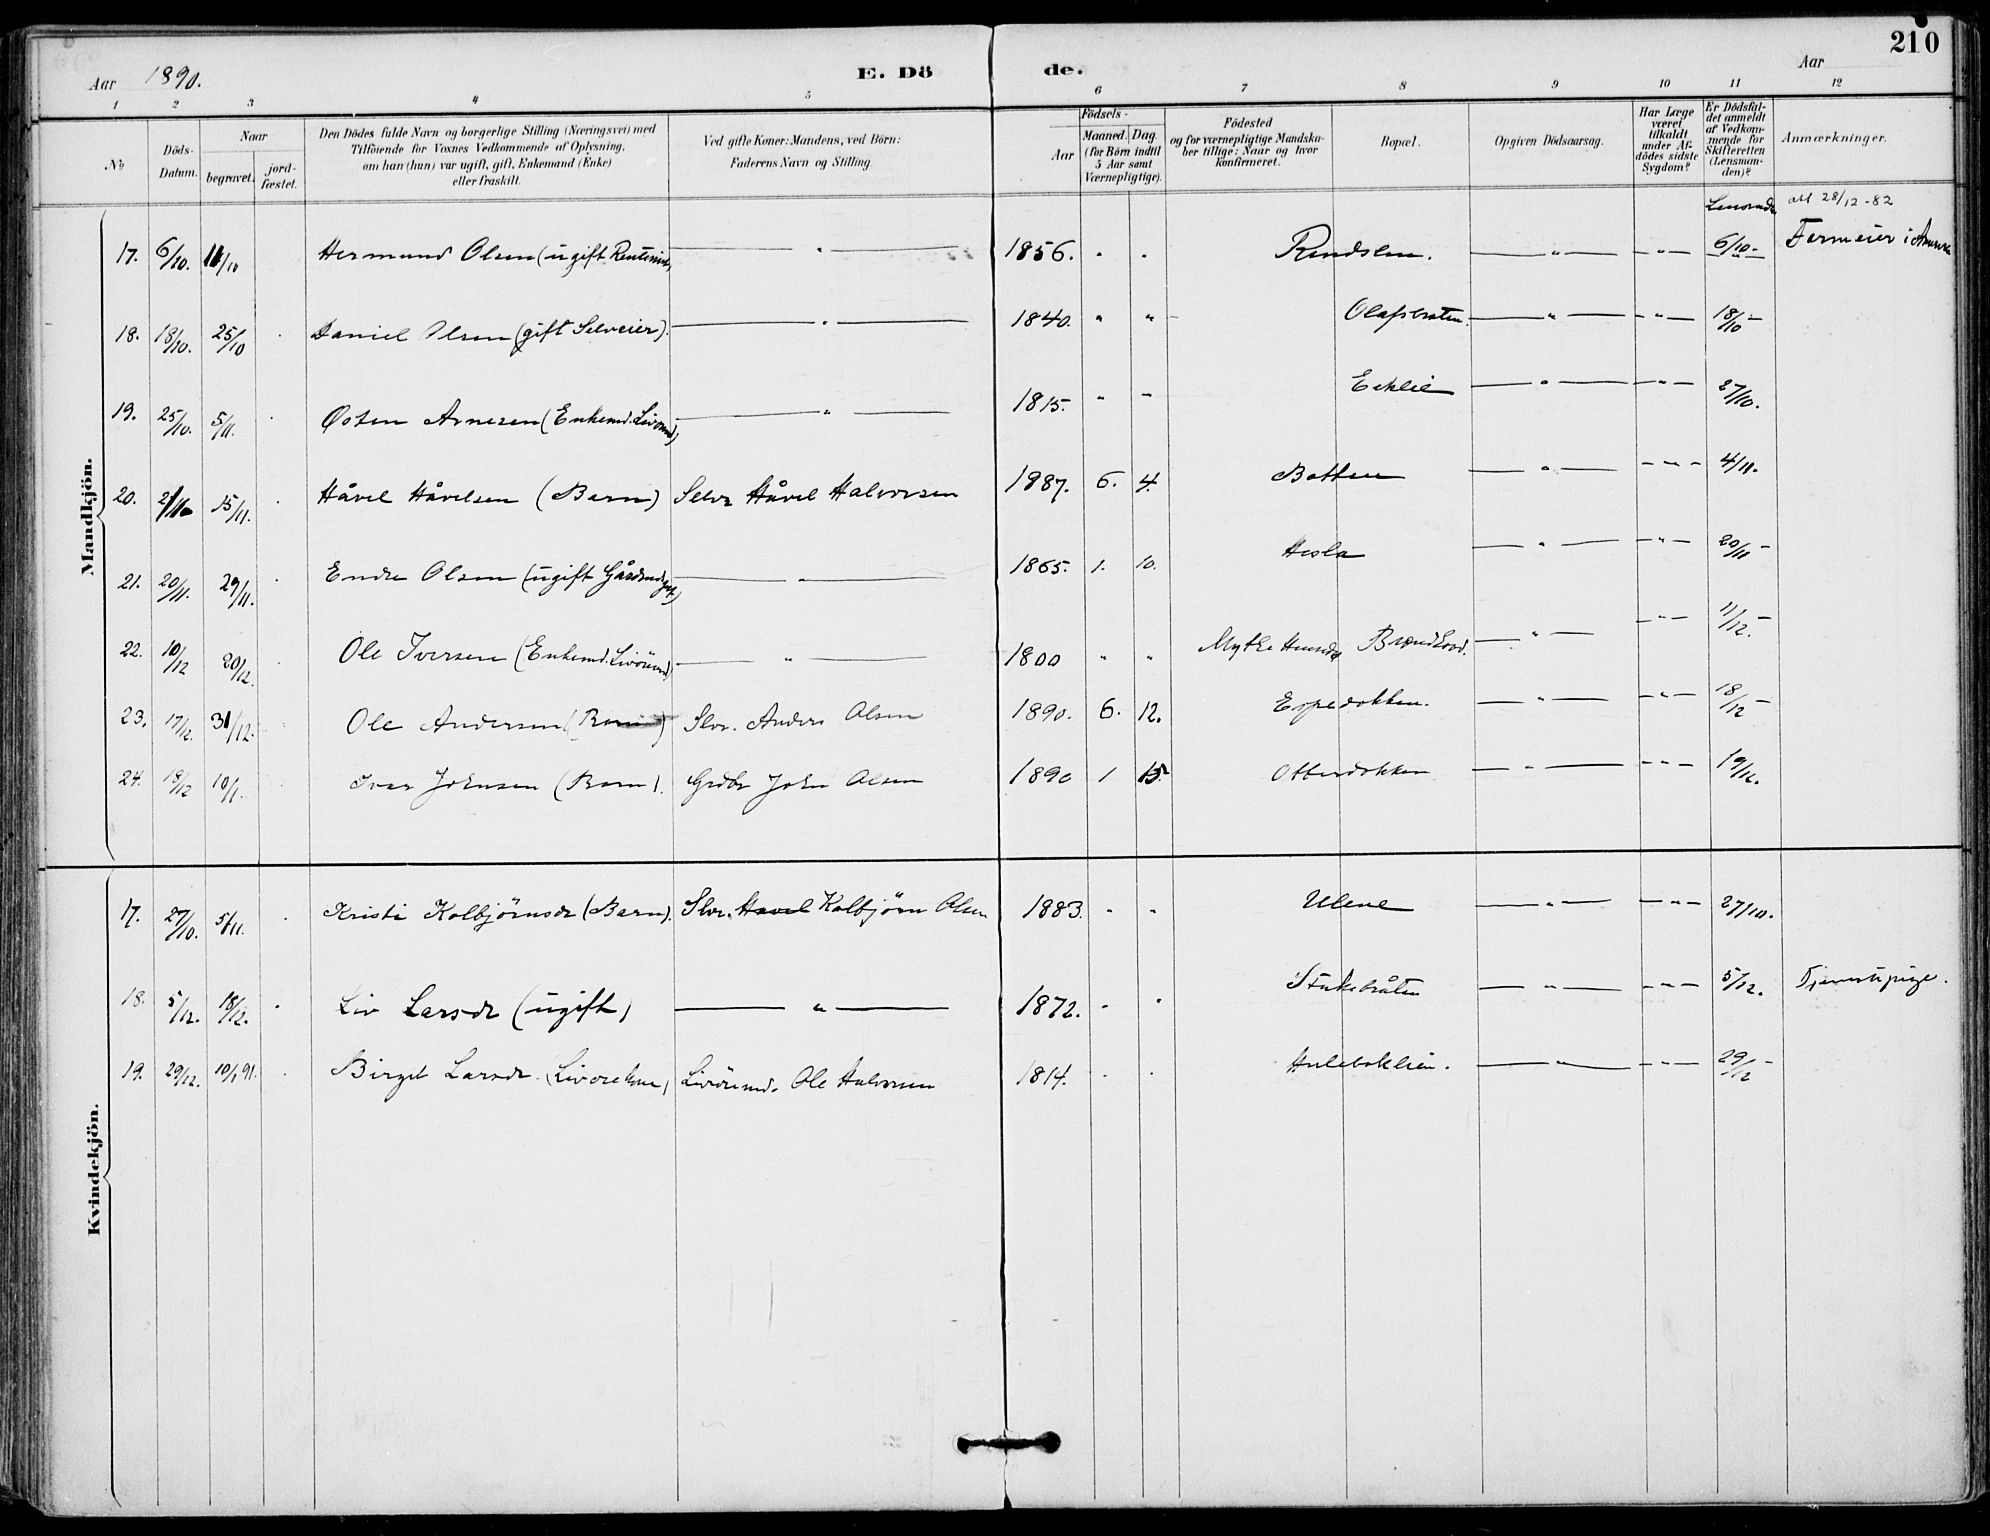 210
Aar 1890. E. Dö de. Aar
1 2 3 4 5 6 7 8 9 10 11 12
No
Döds-Datum.
Naar
begravet.
jord-fæstet.
Den Dödes fulde Navn og borgerlige Stilling (Næringsvei) med
Tilföiende for Voxnes Vedkommende af Oplysning,
om han (hun) var ugift, gift, Enkemand (Enke)
eller fraskilt.
Ved gifte Koner: Mandens, ved Börn:
Faderens Navn og Stilling.
Födsels-
Aar
Maaned. Dag.
(for Börn indtil
5 Aar samt
Værnepligtige).
Födested
og for værnepligtige Mandska-
ber tillige: Naar og hvor
konfirmeret.
Bopæl.
Opgiven Dödsaarsag.
Har Læge
været
tilkaldt
under Af-
dödes sidste
Sygdom?
Er Dödsfal-
det anmeldt
af Vedkom-
mende for
Skifteretten
(Lensman-
den)?
Anmærkninger.
Mandkjön.
28/12-82
17. 6/10. 11/10 Hermund Olsen (ugift — " — 1856. " " — " — — " — 6/10 - Farmeier i
18. 18/10. 25/10 Daniel Olsen (gift Selveier). — " — 1840. " " — " — — " — 18/10 -
19. 25/10. 5/11. Østen Arnesen (Enkemd. — " — 1815. " " Eklie — " — — " — 27/10.
20. 15/11. Håvel Håvelsen (Barn) Selvr Håvel Halvorsen 1887. 6. 4. Botten — " — — " — 4/11.
21. 20/11. 29/11. Endre Olsen (ugift — " — 1865. 1. 10. Hesla — " — — " — 20/11 -
22. 10/12 20/12. Ole Iversen (Enkemd. — " — 1800 " " — " — — " — 11/12. -
23. 17/12. 31/12. Ole Andersen (Barn) Slvr. Anders Olsen 1890. 6. 12. Espedokken. — " — — " — 18/12 -
24. 18/12 10/1. Ivar Johnsen (Barn). John Olsen 1890 1 15. Otterdokken — " — — " — 19/12.
Kvindekjön.
17. 27/10. 5/11. Kristi Kolbjörnsdr (Barn). Slvr. Havel Kolbjörn Olsen 1883. " " Ulene — " — — " — 27/10.
18. 5/12. 18/12. Liv Larsdr (ugift) — " — 1872. " " Stakebråten — " — — " — 5/12. Tjenestepige.
19. 29/12. 10/1 91. Birgit Larsdr. Ole Halvorsen 1814. " " — " — — " — 29/12 -